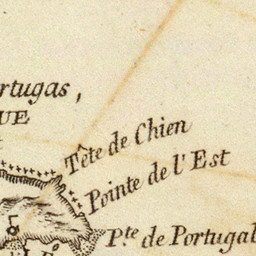 rtugas,
UE
Tête de Chien
Pointe de l'Est
P.te de Portugal